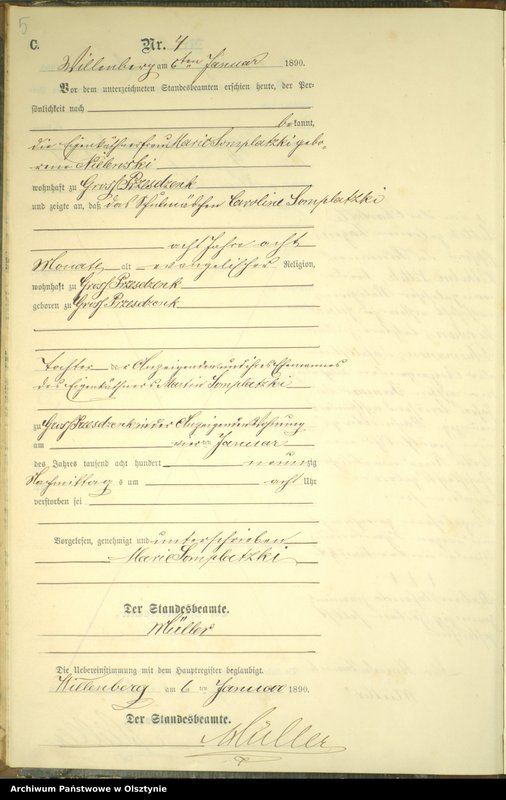 5
C.
Nr. 4
Willenberg am 6ten Januar 1890.
Vor dem unterzeichneten Standesbeamten erschien heute, der Per-
sönlichkeit nach
bekannt,
die Eigenkäthnerfrau Marie Somplatzki gebo-
rene
wohnhaft zu Groß Przesdzenk
und zeigte an, daß das Schulmädchen Caroline Somplatzki
acht Jahre acht
Monate alt evangelischer Religion,
wohnhaft zu Groß Przesdzenk
geboren zu Groß Przesdzenk
Tochter der Anzeigenden und ihres Ehemannes
des Eigenkäthners Martin Somplatzki
zu Groß Przesdzenk in der Anzeigenden Wohnung
am vierten Januar
des Jahres tausend acht hundert neunzig
Nachmittags um acht Uhr
verstorben sei
Vorgelesen, genehmigt und unterschrieben
Marie Somplatzki
Der Standesbeamte.
Müller
Die Uebereinstimmung mit dem Hauptregister beglaubigt.
Willenberg am 6ten Januar 1890.
Der Standesbeamte.
Müller
Archiwum Państwowe w Olsztynie